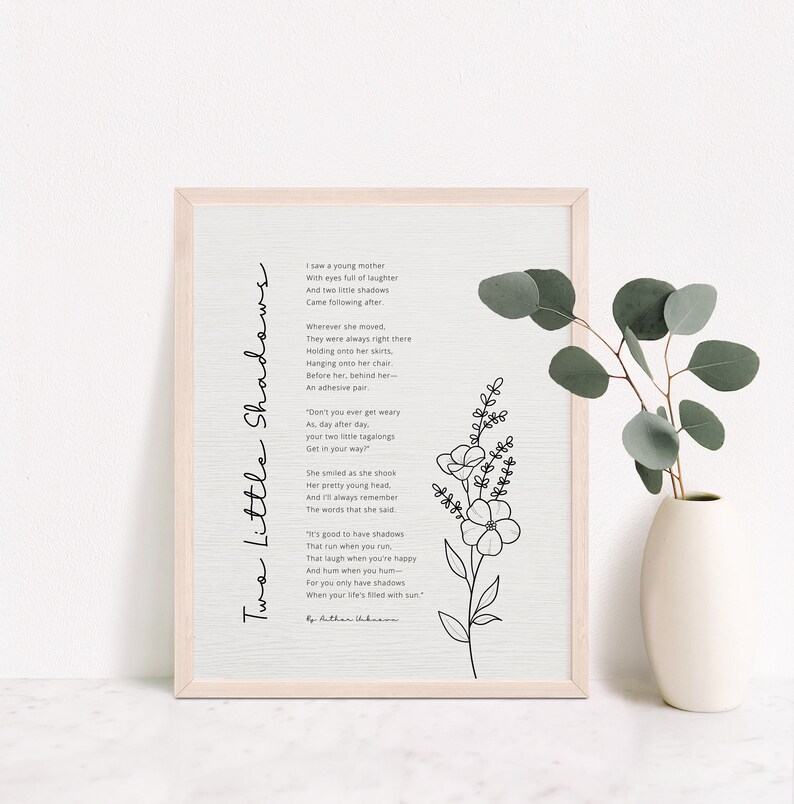 Two Little Shadows
I saw a young mother
With eyes full of laughter
And two little shadows
Came following after.
Wherever she moved,
They were always right there
Holding onto her skirts,
Hanging onto her chair.
Before her, behind her—
An adhesive pair.
"Don't you ever get weary
As, day after day,
your two little tagalongs
Get in your way?"
She smiled as she shook
Her pretty young head,
And I'll always remember
The words that she said.
"It's good to have shadows
That run when you run,
That laugh when you're happy
And hum when you hum—
For you only have shadows
When your life's filled with sun."
By Author Unknown